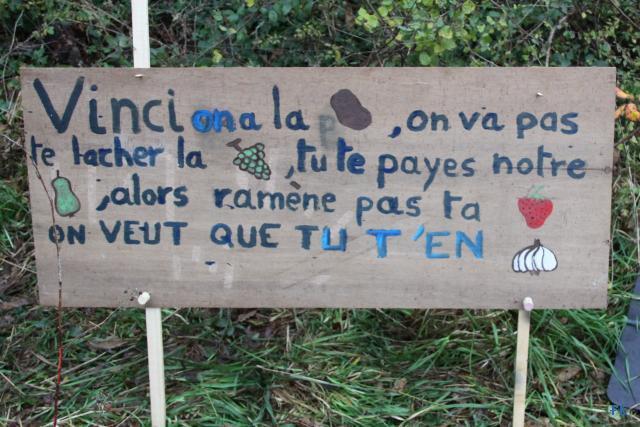 Vinci on a la , on va pas
te lacher la , tu te payes notre
, alors ramène pas ta
ON VEUT QUE TU T'EN